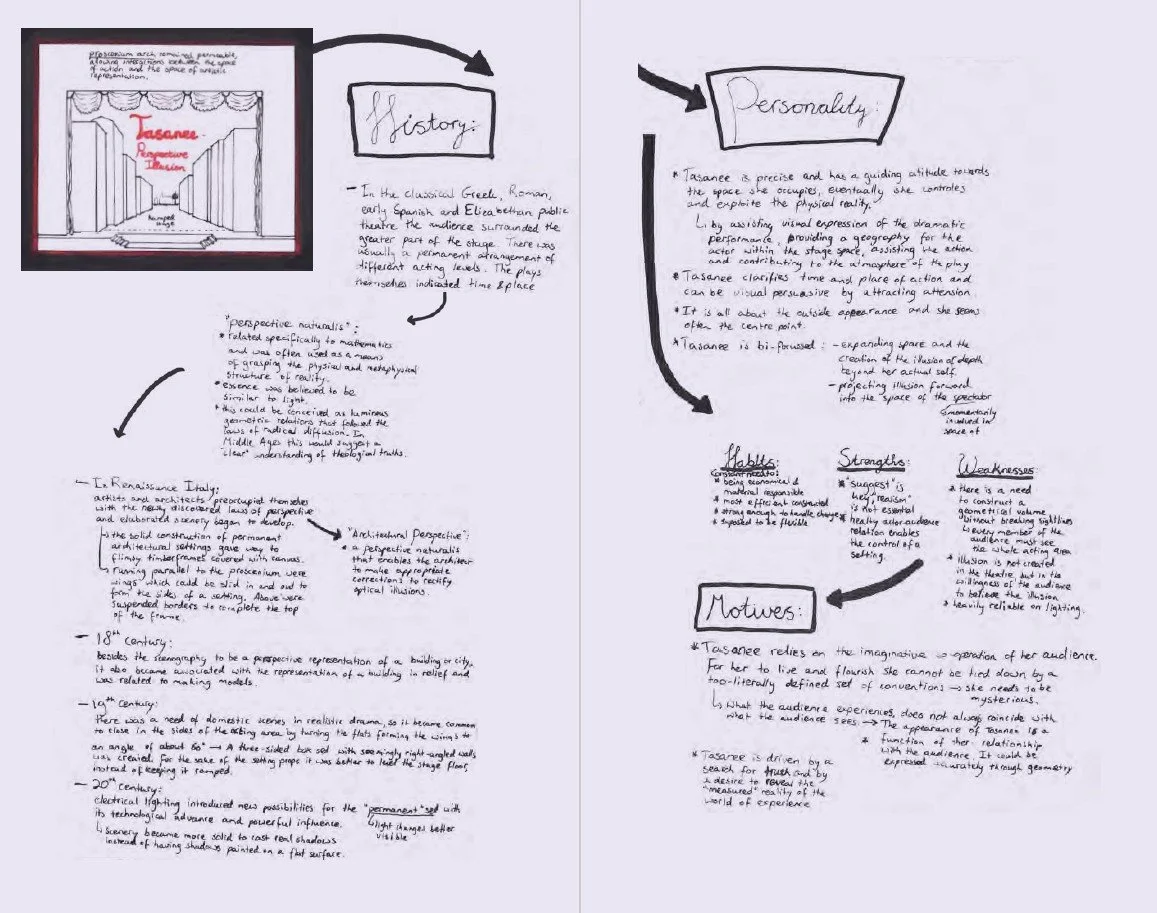 proscenium arch remained permeable,
allowing interactions between the space
of action and the space of artistic
representation.
Tasanee
Perspective
Illusion
Ramped
stage
History:
– In the classical Greek, Roman,
early Spanish and Elizabethan public
theatre the audience surrounded the
greater part of the stage. There was
usually a permanent arrangement of
different acting levels. The plays
themselves indicated time & place
"perspective naturalis":
* related specifically to mathematics
and was often used as a means
of grasping the physical and metaphysical
structure of reality.
* essence was believed to be
similar to light.
* this could be conceived as luminous
geometric relations that followed the
laws of radical diffusion. In
Middle Ages this would suggest a
"clear" understanding of theological truths.
– In Renaissance Italy:
artists and architects preocupied themselves
with the newly discovered laws of perspective
and elaborated scenery began to develop.
↳ the solid construction of permanent
architectural settings gave way to
flimsy timberframes covered with canvas.
↳ running parallel to the proscenium were
wings which could be slid in and out to
form the sides of a setting. Above were
suspended borders to complete the top
of the frame.
"Architectural Perspective":
* a perspective naturalis
that enables the architect
to make appropriate
corrections to rectify
optical illusions.
– 18th Century:
besides the scenography to be a perspective representation of a building or city,
it also became associated with the representation of a building in relief and
was related to making models.
– 19th Century:
There was a need of domestic scenes in realistic drama, so it became common
to close in the sides of the acting area by turning the flats forming the wings to
an angle of about 80° → A three-sided box set with seemingly right-angled walls
was created. For the sake of the setting props it was better to level the stage floor,
instead of keeping it ramped.
– 20th Century:
electrical lighting introduced new possibilities for the "permanent" set with
its technological advance and powerful influence.
↳ light changes better
visible
↳ Scenery became more solid to cast real shadows
instead of having shadows painted on a flat surface.
Personality:
* Tasanee is precise and has a guiding atitude towards
the space she occupies, eventually she controles
and exploits the physical reality.
↳ by assisting visual expression of the dramatic
performance, providing a geography for the
actor within the stage space, assisting the action
and contributing to the atmosphere of the play
* Tasanee clarifies time and place of action and
can be visual persuasive by attracting attension.
* It is all about the outside appearance and she seems
often the centre point.
* Tasanee is bi-focussed : – expanding space and the
creation of the illusion of depth
beyond her actual self.
– projecting illusion forward
into the space of the spectator
↳ momentarily
involved in
space of
Habits:
Constant need to:
* being economical &
material responsible
* most efficient constructed
* strong enough to handle changes
* suposed to be flexible
Strengths:
* "suggest" is
key, "realism"
is not essential
* healthy actor-audience
relation enables
the control of a
setting.
Weaknesses
* there is a need
to construct a
geometical volume
without breaking sightlines
↳ every member of the
audience must see
the whole acting area
* illusion is not created
in the theatre, but in the
willingness of the audience
to believe the illusion
* heavily reliable on lighting.
Motives:
* Tasanee relies on the imaginative co-operation of her audience.
For her to live and flourish she cannot be tied down by a
too-literally defined set of conventions → she needs to be
mysterious.
↳ What the audience experiences, does not always coincide with
what the audience sees. → The appearance of Tasanee is a
function of her relationship
with the audience. It could be
expressed accurately through geometry
* Tasanee is driven by a
search for truth and by
a desire to reveal the
"measured" reality of the
world of experience